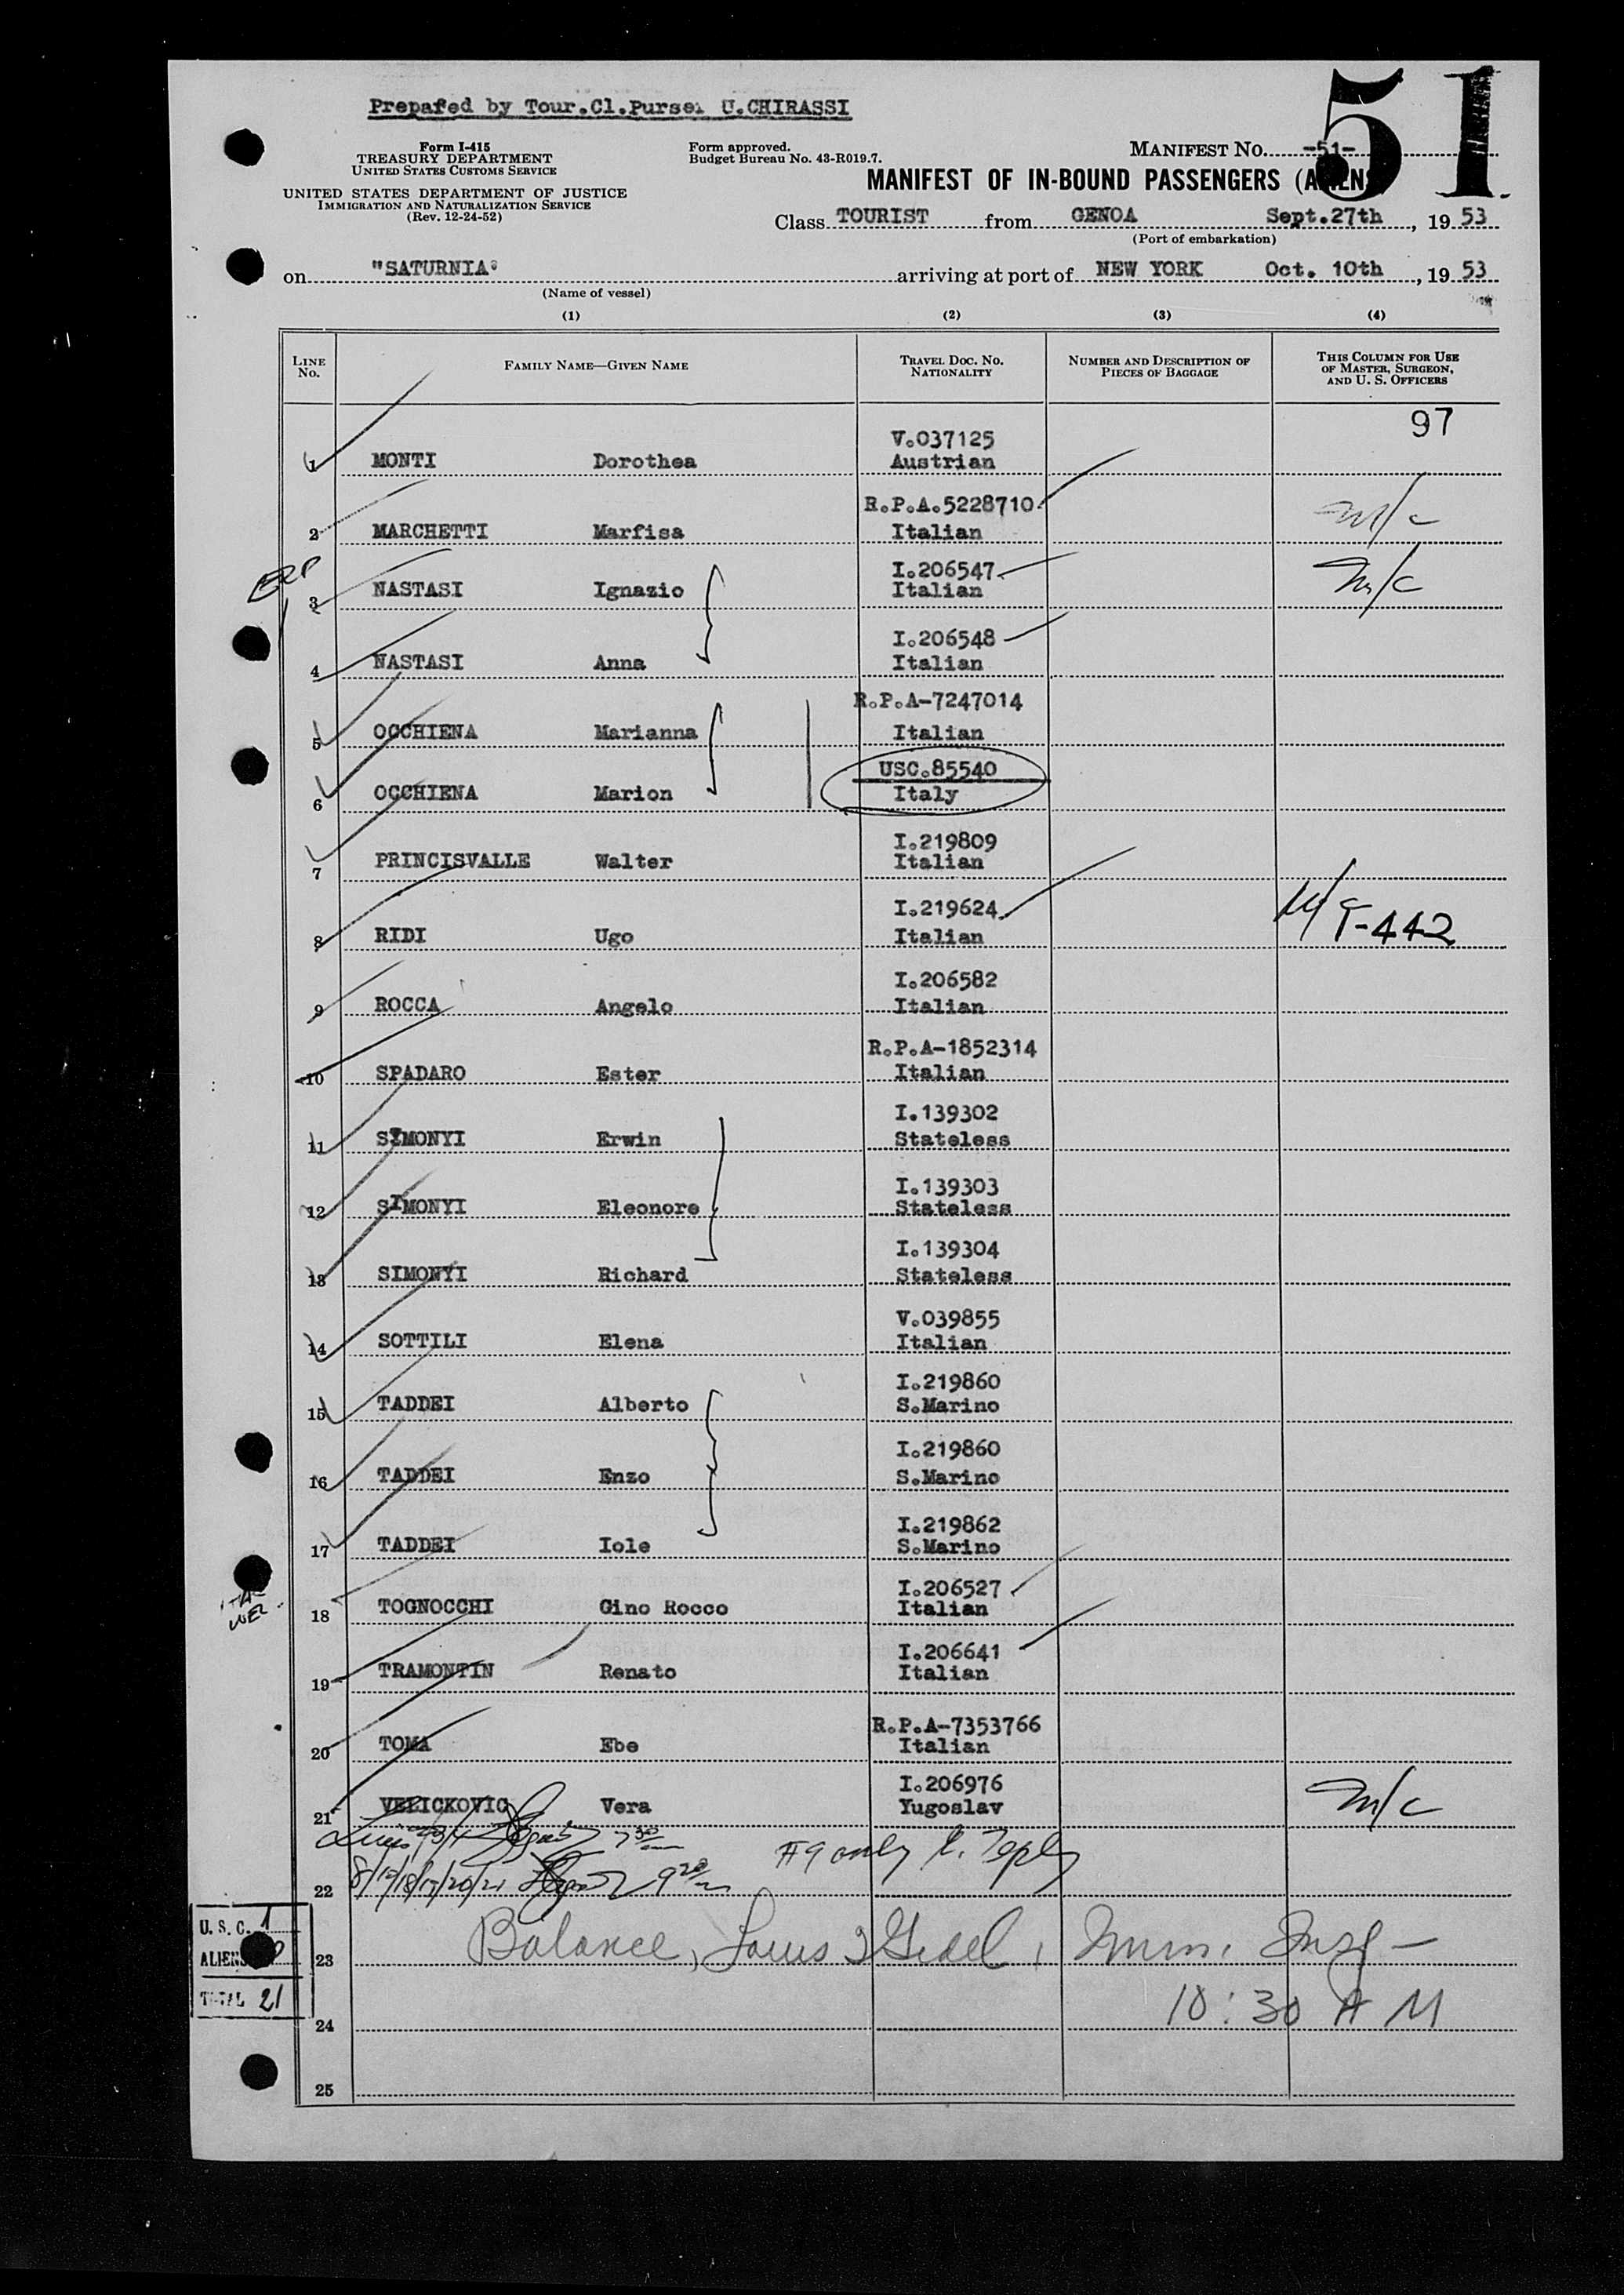 Prepared by Tour.Cl.Purser U.CHIRASSI
51
Form I-415
TREASURY DEPARTMENT
UNITED STATES CUSTOMS SERVICE
UNITED STATES DEPARTMENT OF JUSTICE
IMMIGRATION AND NATURALIZATION SERVICE
(Rev. 12-24-52)
Form approved.
Budget Bureau No. 43-R019.7.
MANIFEST NO. -51-
MANIFEST OF IN-BOUND PASSENGERS (ALIENS)
Class TOURIST from GENOA Sept.27th, 19 53
(Port of embarkation)
on "SATURNIA" arriving at port of NEW YORK Oct. 10th, 19 53
(Name of vessel)
(1) (2) (3) (4)
LINE NO. FAMILY NAME—GIVEN NAME TRAVEL DOC. NO. NATIONALITY NUMBER AND DESCRIPTION OF PIECES OF BAGGAGE THIS COLUMN FOR USE OF MASTER, SURGEON, AND U. S. OFFICERS
97
V.037125
1 MONTI Dorothea Austrian
R.P.A.5228710
2 MARCHETTI Marfisa Italian m/c
I.206547
3 NASTASI Ignazio Italian m/c
I.206548
4 NASTASI Anna Italian
R.P.A-7247014
5 OCCHIENA Marianna Italian
USC.85540
6 OCCHIENA Marion Italy
I.219809
7 PRINCISVALLE Walter Italian
I.219624
8 RIDI Ugo Italian M/c T-442
I.206582
9 ROCCA Angelo Italian
R.P.A-1852314
10 SPADARO Ester Italian
I.139302
11 SIMONYI Erwin Stateless
I.139303
12 SIMONYI Eleonore Stateless
I.139304
13 SIMONYI Richard Stateless
V.039855
14 SOTTILI Elena Italian
I.219860
15 TADDEI Alberto S.Marino
I.219860
16 TADDEI Enzo S.Marino
I.219862
17 TADDEI Iole S.Marino
I.206527
18 TOGNOCCHI Gino Rocco Italian
I.206641
19 TRAMONTIN Renato Italian
R.P.A-7353766
20 TOMA Ebe Italian
I.206976
21 VELICKOVIC Vera Yugoslav m/c
#9 only
22
U. S. C. 1
23 Balance, Louis Imm.
ALIENS
24 10:30 A M
TOTAL 21
25